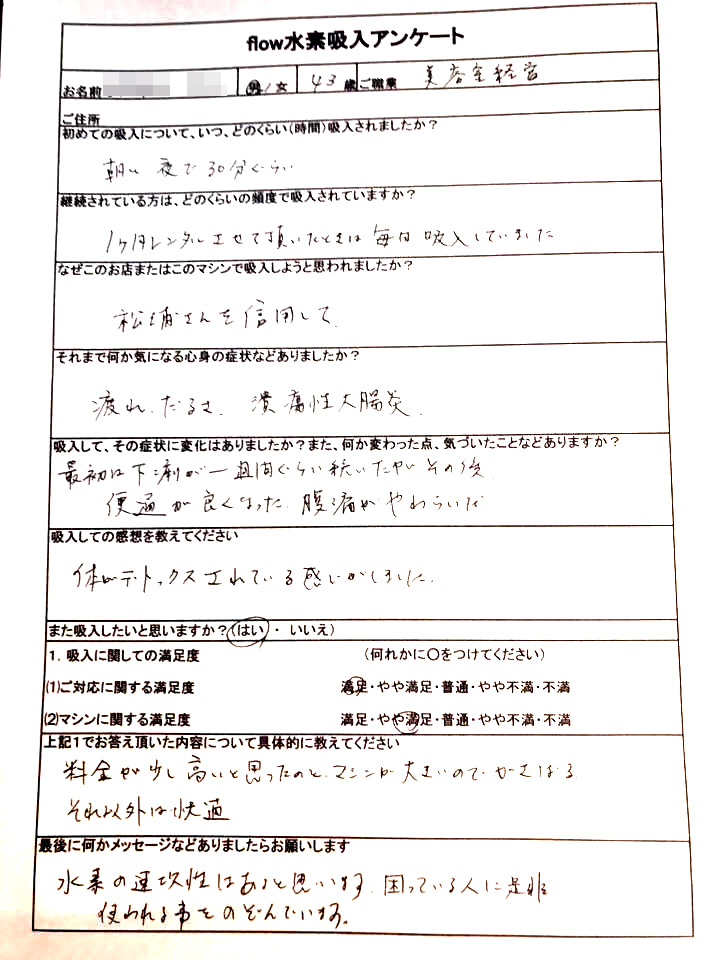 flow水素吸入アンケート
お名前 男/女 43 歳 ご職業 美容室経営
ご住所
初めての吸入について、いつ、どのくらい(時間)吸入されましたか？
朝い 夜で30分ぐらい
継続されている方は、どのくらいの頻度で吸入されていますか？
1ヶ月レンタルさせて頂いたときは毎日吸入していました
なぜこのお店またはこのマシンで吸入しようと思われましたか？
松浦さんを信用して
それまで何か気になる心身の症状などありましたか？
疲れ、だるさ、潰瘍性大腸炎
吸入して、その症状に変化はありましたか？また、何か変わった点、気づいたことなどありますか？
最初は下痢が一週間ぐらい続いたが その後
便通が良くなった。腹痛がやわらいだ
吸入しての感想を教えてください
体がデトックスされている感じがしました。
また吸入したいと思いますか？(はい ・ いいえ)
1. 吸入に関しての満足度 (何れかに〇をつけてください)
(1)ご対応に関する満足度 満足・やや満足・普通・やや不満・不満
(2)マシンに関する満足度 満足・やや満足・普通・やや不満・不満
上記1でお答え頂いた内容について具体的に教えてください
料金が少し高いと思ったのと、マシンが大きいのでかさばる
それ以外は快適
最後に何かメッセージなどありましたらお願いします
水素の 性はあると思います。困っている人に是非
使われる事をのぞんでいます。